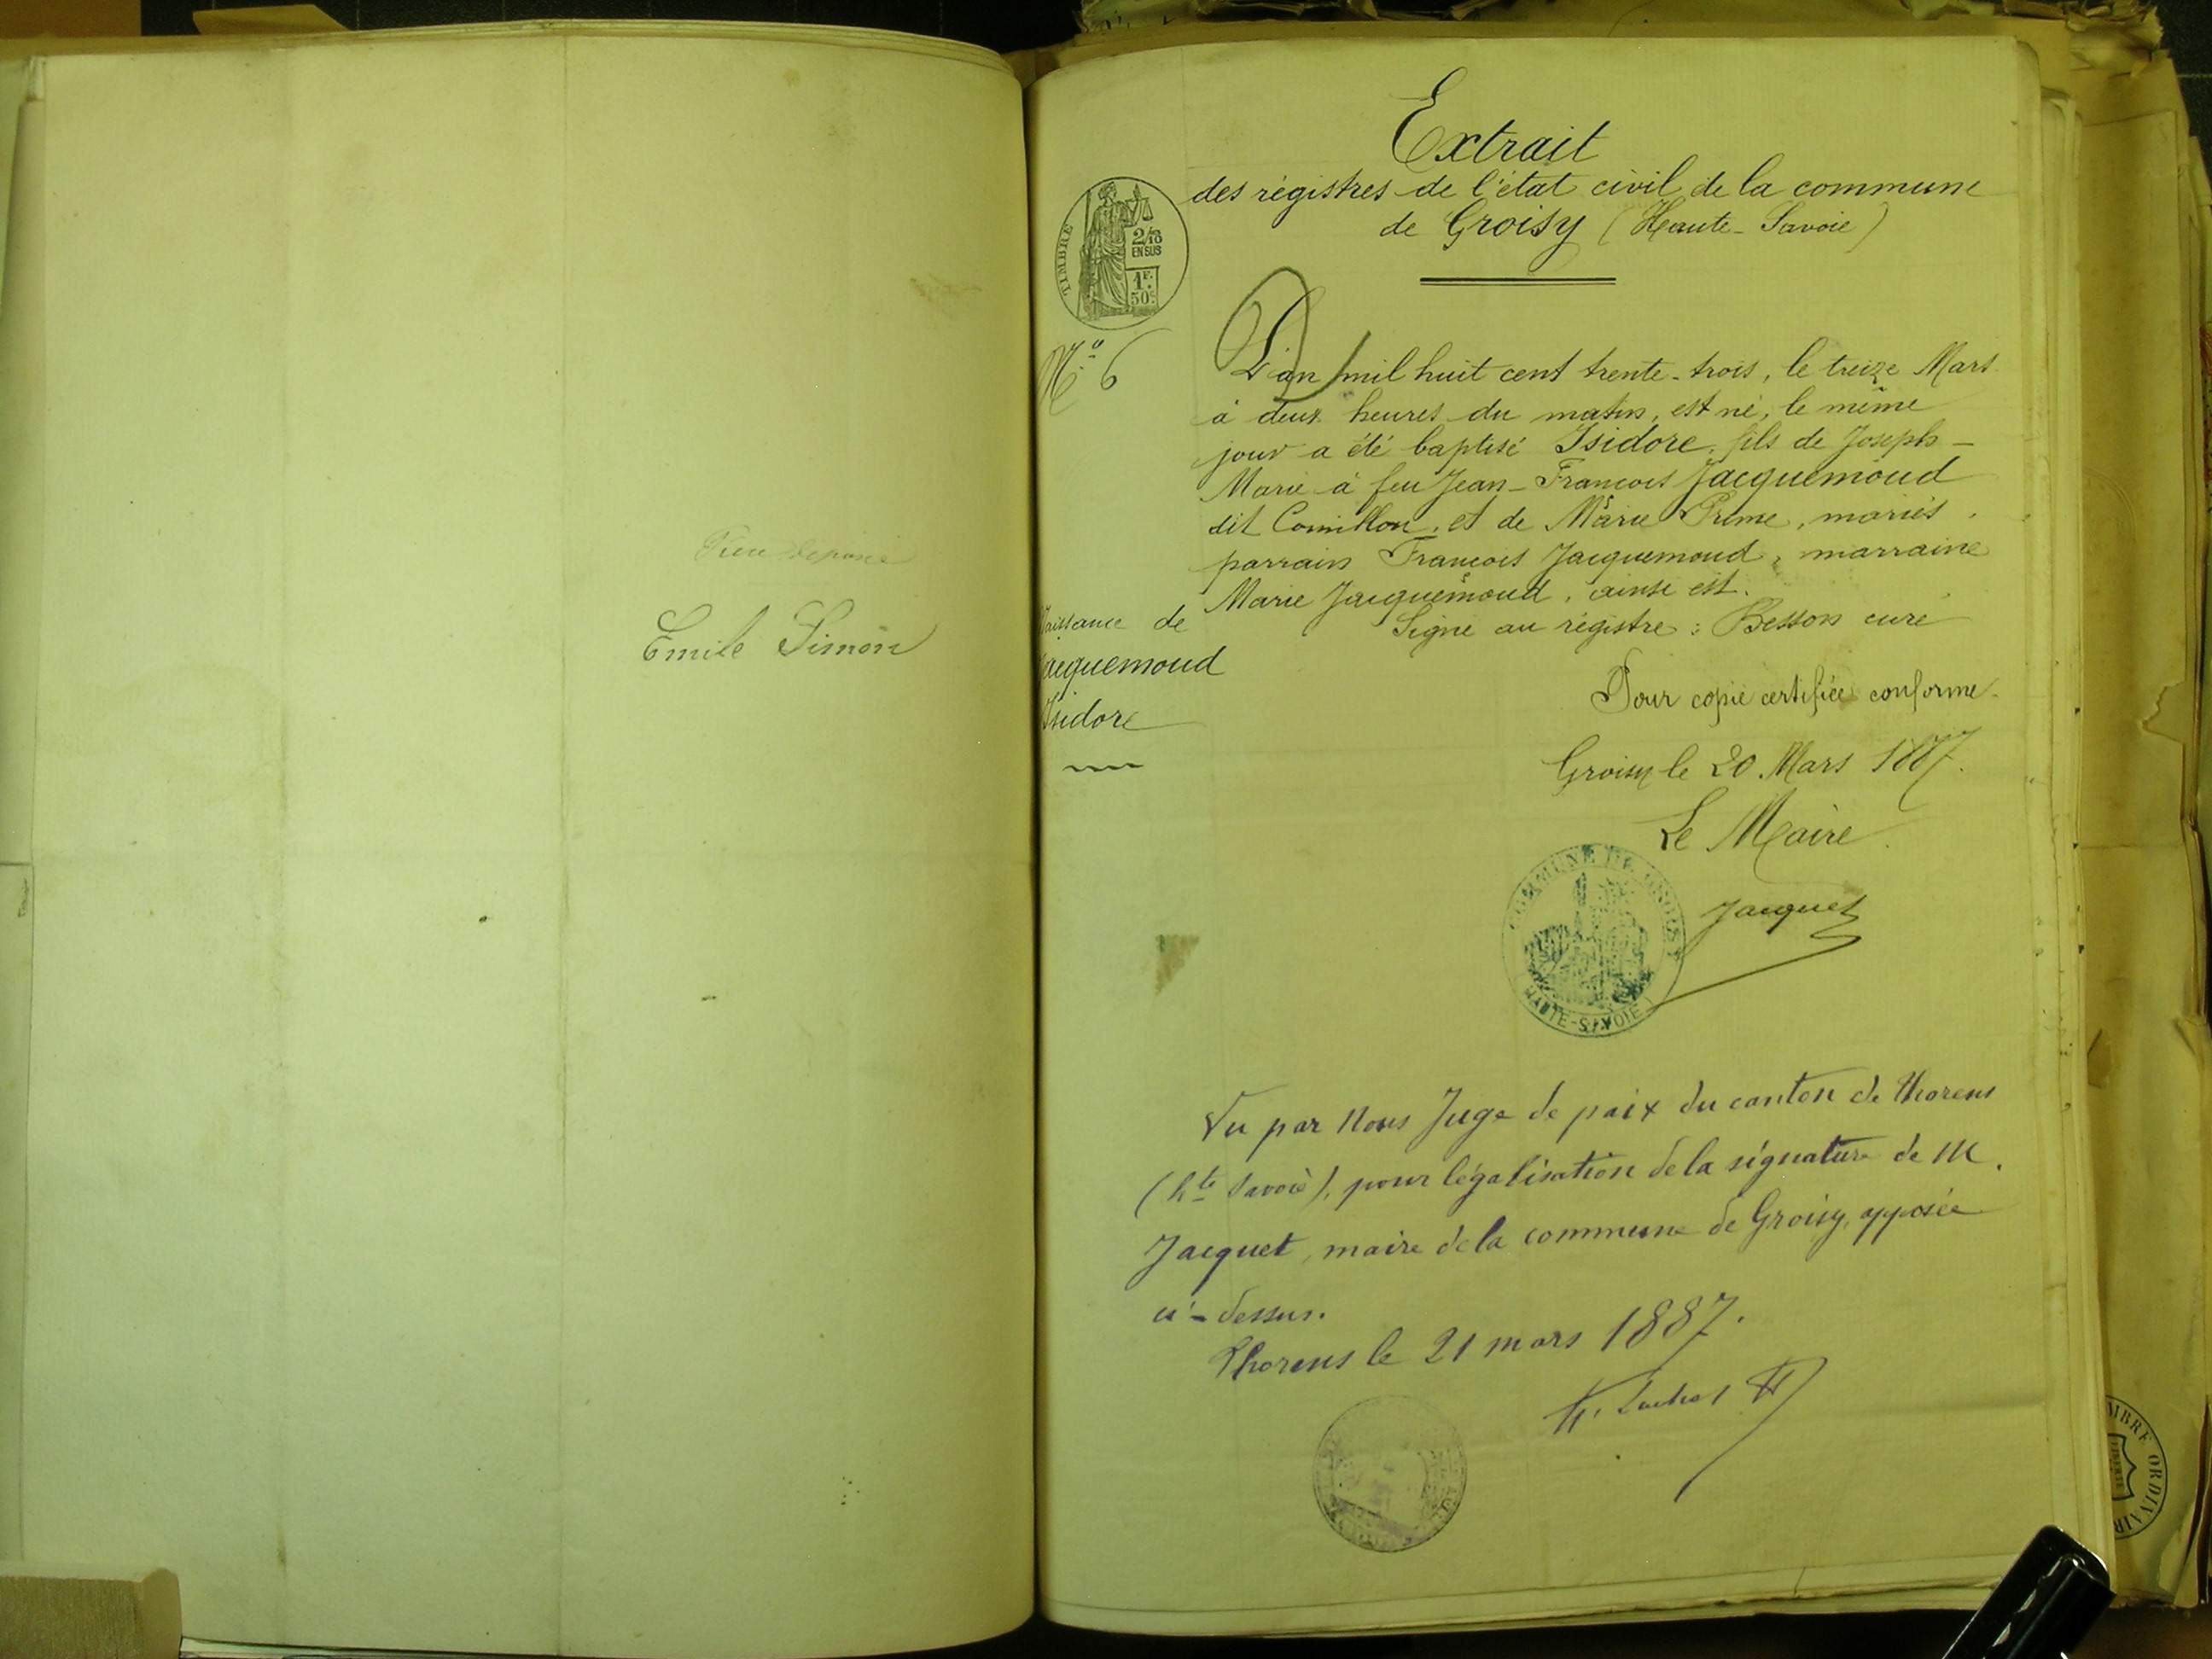 Emile Simon
Extrait
des régistres de l'état civil de la commune
de Groisy (Haute-Savoie)
TIMBRE
2/10
EN SUS
1F.
50c
N.º 6
L'an mil huit cent trente-trois, le treize Mars
à deux heures du matin, est né, le même
jour a été baptisé Isidore, fils de Joseph-
Marie à feu Jean-François Jacquemoud
dit Comillon, et de Marie Prime, mariés,
parrain François Jacquemoud, marraine
Marie Jacquemoud, ainsi est.
Signé au régistre : Besson curé
Naissance de
Jacquemoud
Isidore
Pour copie certifiée conforme.
Groisy le 20 Mars 1887.
Le Maire
Jacquet
COMMUNE DE GROISY
HAUTE-SAVOIE
Vu par Nous Juge de paix du canton de Thorens
(hte Savoie), pour légalisation de la signature de M.
Jacquet, maire de la commune de Groisy, apposée
ci-dessus.
Thorens le 21 mars 1887.
MBRE ORDINAIR